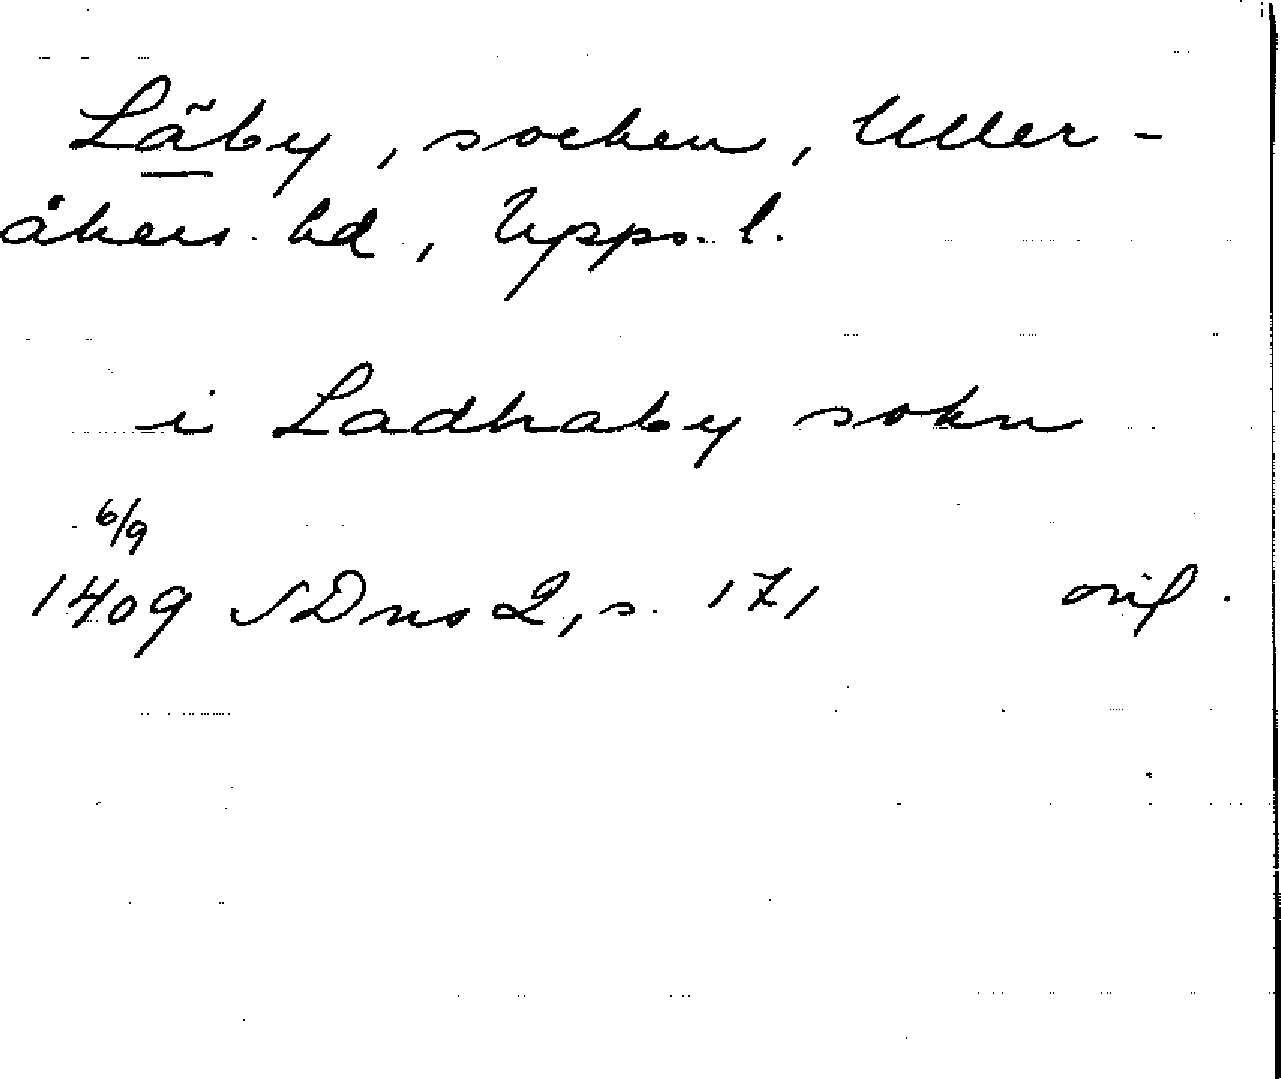 Läby, socken, Uller-
åkers hd, Upps. l.
i Ladhaby sokn
6/9
1409 SDns 2, s. 171 orig.